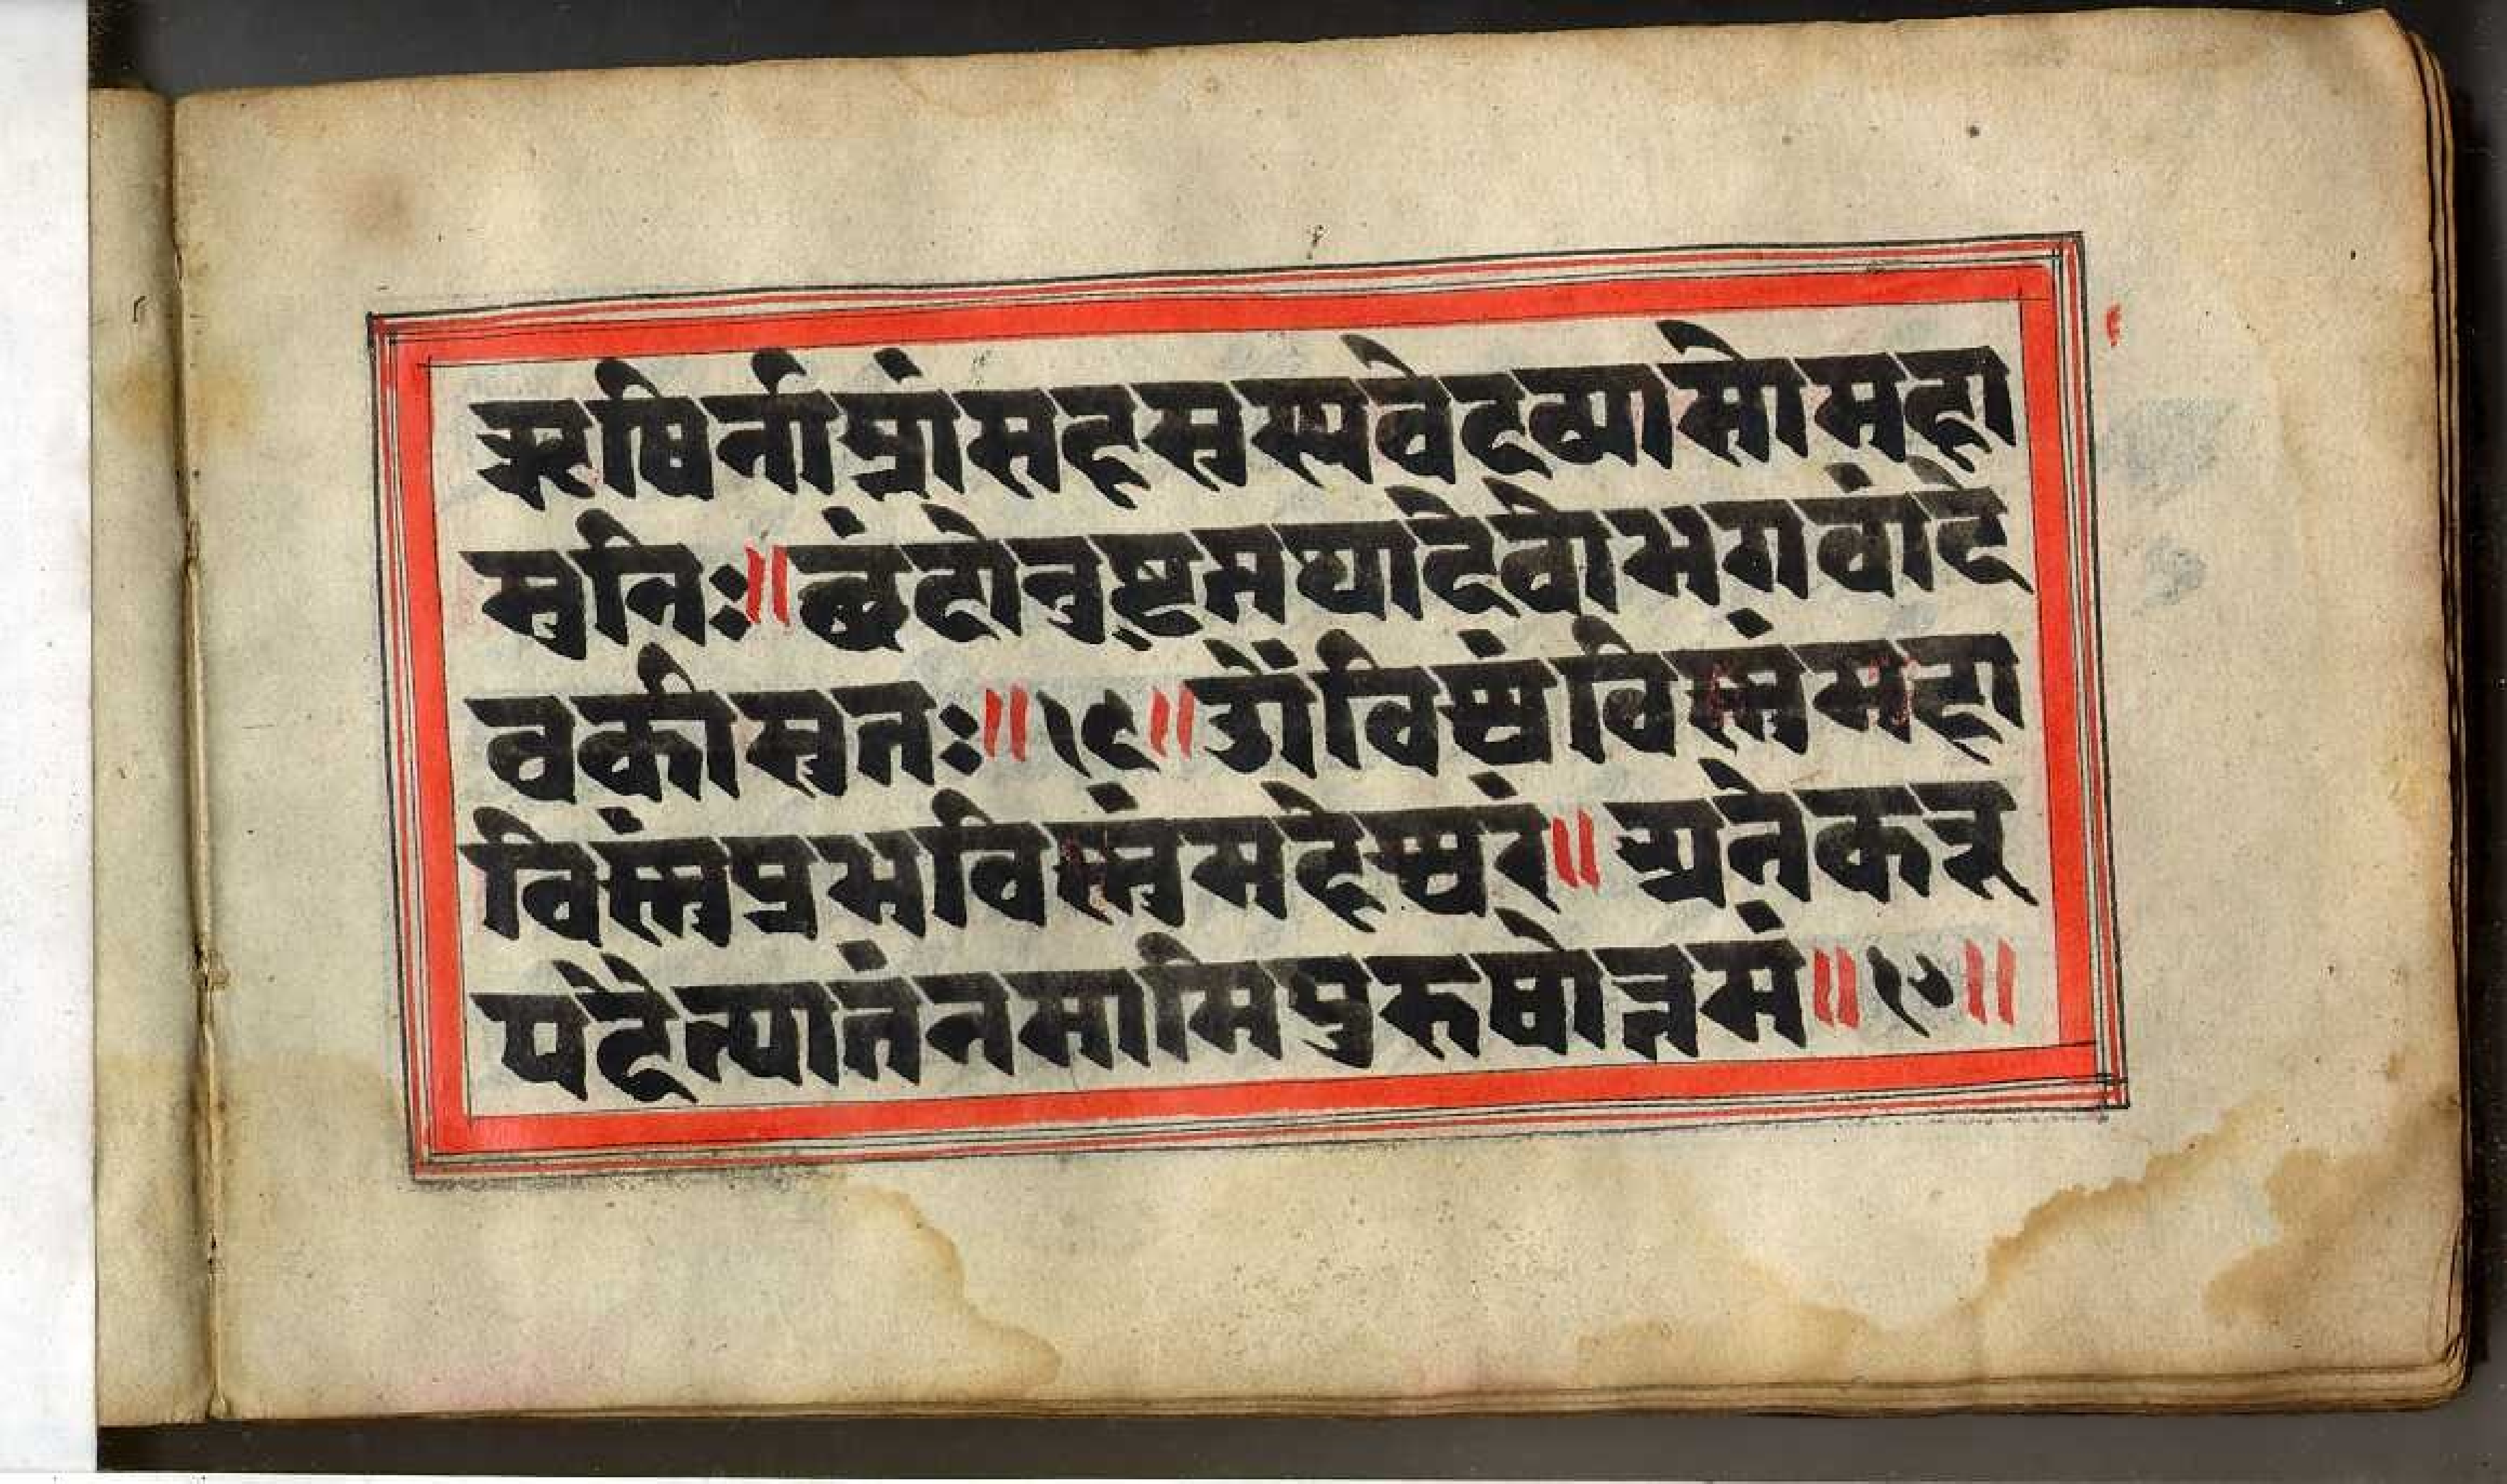 ऋषिर्नाम्रांसहस्रस्यवेदव्यासोमहा
मुनिः॥छंदोनुष्टुमयथादेवोभगवांदे
वकीसुतः॥१९॥उोंविष्णंविस्नंमहा
विंस्नप्रभविस्नंमहेष्वरं॥अनेकरू
पदैत्यांतंनमामिपुरुषोत्तमं॥२०॥